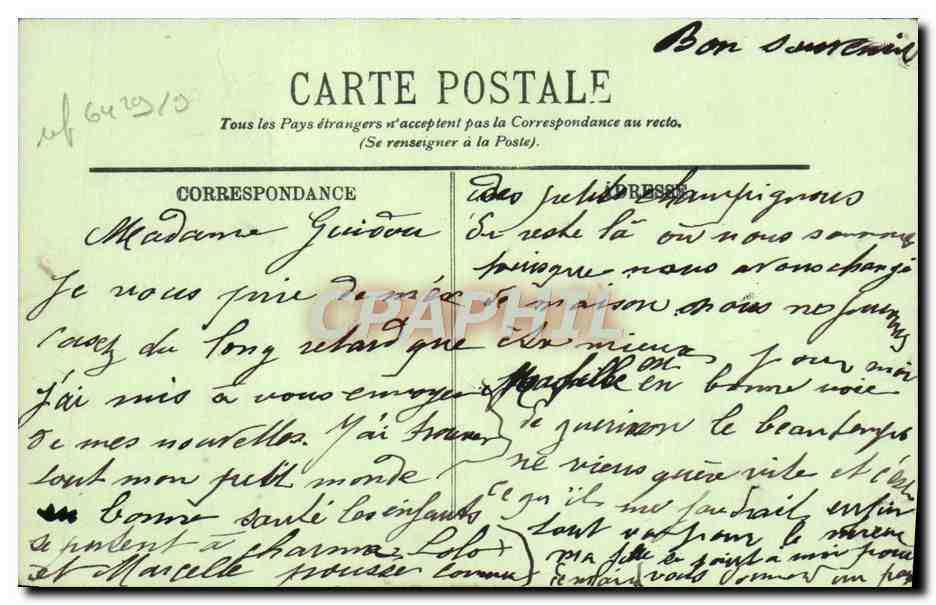 Bon souvenir
CARTE POSTALE
ref 6429/9
Tous les Pays étrangers n'acceptent pas la Correspondance au recto.
(Se renseigner à la Poste).
CORRESPONDANCE
Madame Guidou
Je vous prie de m'éx
cusez du long retard que
j'ai mis à vous envoyer
de mes nouvelles. J'ai trouver
tout mon petit monde
en bonne santé les enfants
se portent à charme Lolo
et Marcelle pousse comme
ADRESSE
des petits champignons
Du reste là où nous sommes
puisque nous avons changé
de maison nous ne pouvons
être mieux pour moi
est en bonne voie
de guérison le beau temps
ne viens guère vite et c'est
ce qu'il me faudrait enfin
tout va pour le mieux
ma fille se joint a moi pour
vous
CRAPHIL